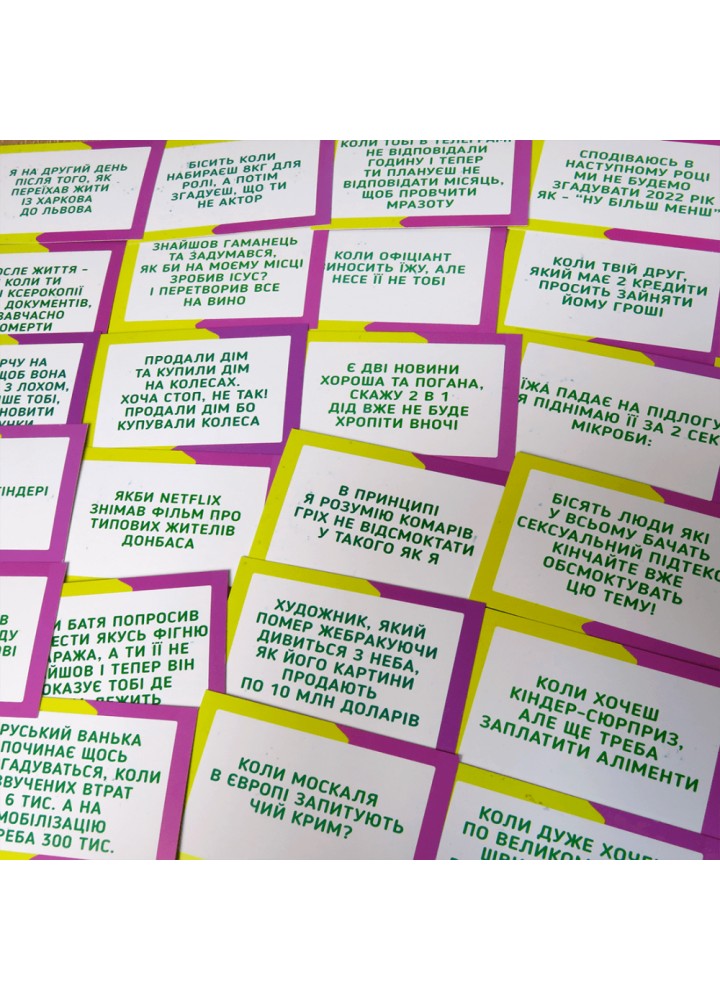 Я НА ДРУГИЙ ДЕНЬ
ПІСЛЯ ТОГО, ЯК
ПЕРЕЇХАВ ЖИТИ
ІЗ ХАРКОВА
ДО ЛЬВОВА
БІСИТЬ КОЛИ
НАБИРАЄШ ВКГ ДЛЯ
РОЛІ, А ПОТІМ
ЗГАДУЄШ, ЩО ТИ
НЕ АКТОР
КОЛИ ТОБІ В ТЕЛЕГРАМІ
НЕ ВІДПОВІДАЛИ
ГОДИНУ І ТЕПЕР
ТИ ПЛАНУЄШ НЕ
ВІДПОВІДАТИ МІСЯЦЬ,
ЩОБ ПРОВЧИТИ
МРАЗОТУ
СПОДІВАЮСЬ В
НАСТУПНОМУ РОЦІ
МИ НЕ БУДЕМО
ЗГАДУВАТИ 2022 РІК
ЯК - “НУ БІЛЬШ МЕНШ”
ЖИТТЯ -
КОЛИ ТИ
КСЕРОКОПІЇ
ДОКУМЕНТІВ,
ЗАВЧАСНО
ПОМЕРТИ
ЗНАЙШОВ ГАМАНЕЦЬ
ТА ЗАДУМАВСЯ,
ЯК БИ НА МОЄМУ МІСЦІ
ЗРОБИВ ІСУС?
І ПЕРЕТВОРИВ ВСЕ
НА ВИНО
КОЛИ ОФІЦІАНТ
ВИНОСИТЬ ЇЖУ, АЛЕ
НЕСЕ ЇЇ НЕ ТОБІ
КОЛИ ТВІЙ ДРУГ,
ЯКИЙ МАЄ 2 КРЕДИТИ
ПРОСИТЬ ЗАЙНЯТИ
ЙОМУ ГРОШІ
НА
ЩОБ ВОНА
З ЛОХОМ,
ТОБІ,
ПРОДАЛИ ДІМ
ТА КУПИЛИ ДІМ
НА КОЛЕСАХ.
ХОЧА СТОП, НЕ ТАКІ
ПРОДАЛИ ДІМ БО
КУПУВАЛИ КОЛЕСА
Є ДВІ НОВИНИ
ХОРОША ТА ПОГАНА,
СКАЖУ 2 В 1
ДІД ВЖЕ НЕ БУДЕ
ХРОПІТИ ВНОЧІ
ЇЖА ПАДАЄ НА ПІДЛОГУ
Я ПІДНІМАЮ ЇЇ ЗА 2 СЕК
МІКРОБИ:
ТІНДЕРІ
ЯКБИ NETFLIX
ЗНІМАВ ФІЛЬМ ПРО
ТИПОВИХ ЖИТЕЛІВ
ДОНБАСА
В ПРИНЦИПІ
Я РОЗУМІЮ КОМАРІВ
ГРІХ НЕ ВІДСМОКТАТИ
У ТАКОГО ЯК Я
БІСЯТЬ ЛЮДИ ЯКІ
У ВСЬОМУ БАЧАТЬ
СЕКСУАЛЬНИЙ ПІДТЕКС
КІНЧАЙТЕ ВЖЕ
ОБСМОКТУВАТЬ
ЦЮ ТЕМУ!
БАТЯ ПОПРОСИВ
ЯКУСЬ ФІГНЮ
А ТИ ЇЇ НЕ
І ТЕПЕР ВІН
ТОБІ ДЕ
ЛЕЖИТЬ
ХУДОЖНИК, ЯКИЙ
ПОМЕР ЖЕБРАКУЮЧИ
ДИВИТЬСЯ З НЕБА,
ЯК ЙОГО КАРТИНИ
ПРОДАЮТЬ
ПО 10 МЛН ДОЛАРІВ
КОЛИ ХОЧЕШ
КІНДЕР-СЮРПРИЗ,
АЛЕ ЩЕ ТРЕБА
ЗАПЛАТИТИ АЛІМЕНТИ
РУСЬКИЙ ВАНЬКА
ПОЧИНАЄ ЩОСЬ
КОЛИ
ВТРАТ
6 ТИС. А НА
МОБІЛІЗАЦІЮ
ТРЕБА 300 ТИС.
КОЛИ МОСКАЛЯ
В ЄВРОПІ ЗАПИТУЮТЬ
ЧИЙ КРИМ?
КОЛИ ДУЖЕ
ПО